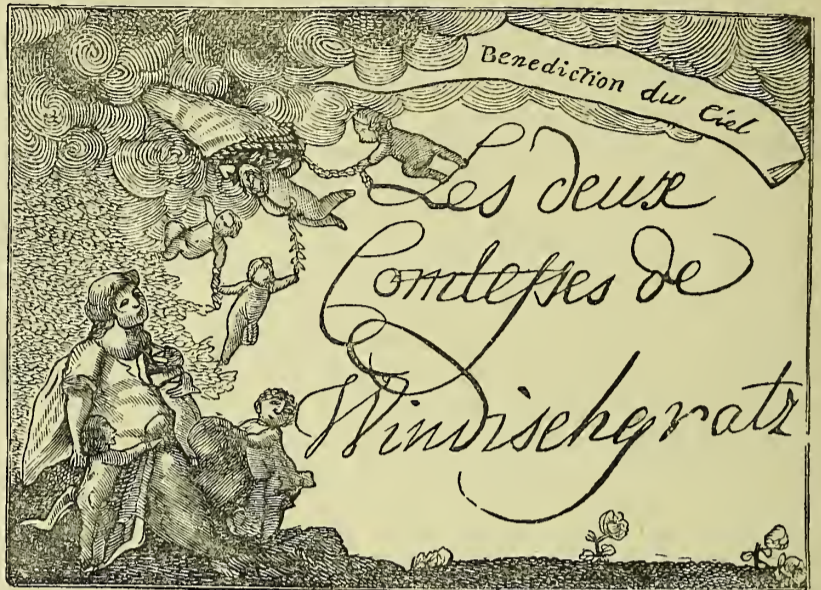 Benediction du Ciel
Les deux
Comtesses de
Windischgratz